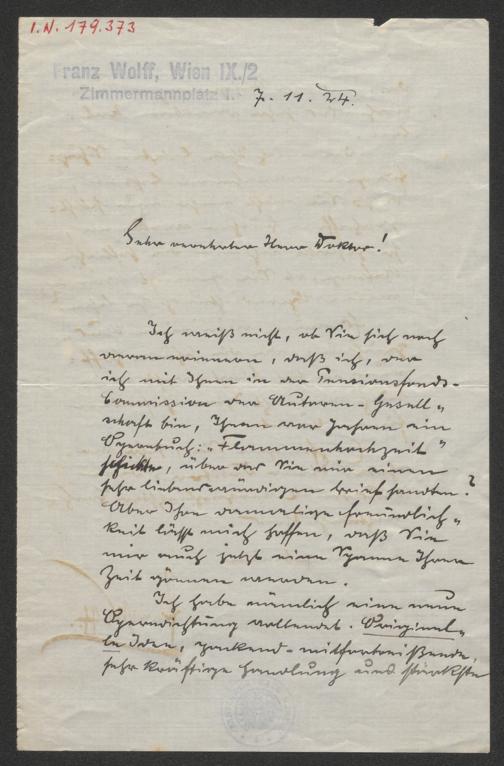 I.N. 179.373
Franz Wolff, Wien IX./2
Zimmermannplatz 1.
7. 11. 24.
Sehr verehrter Herr Doktor!
Ich weiß nicht, ob Sie sich noch
daran erinnern, daß ich, der
ich mit Ihnen in der Pensionsfonds-
Commission der Autoren-Gesell„
schaft bin, Ihnen vor Jahren ein
Opernbuch: „Flammenhochzeit“
schickte, über das Sie mir einen
sehr liebenswürdigen Brief sandten?
Aber Ihre damalige Freundlich„
keit läßt mich hoffen, daß Sie
mir auch jetzt eine Spanne Ihrer
Zeit gönnen werden.
Ich habe nämlich eine neue
Operndichtung vollendet. Originel„
le Idee, packend-mitfortreißende,
sehr kräftige Handlung und stärkste